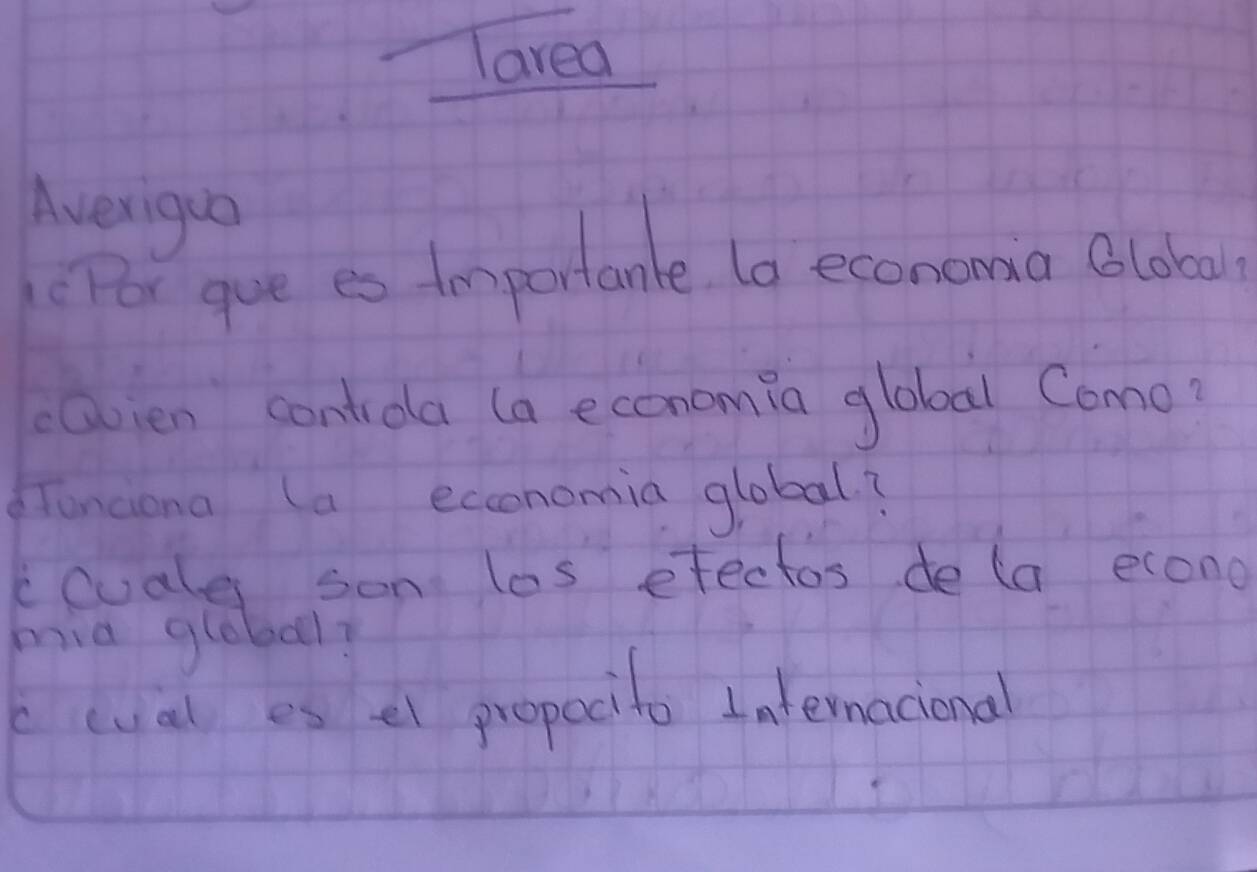 Tarea
Averigua
¿Por que es Importante la economia Global?
¿Quien controla la economia global Como?
¿Funciona la ecconomia global?
¿Cuales son los efectos de la econo
mia global?
¿cual es el propocito Internacional